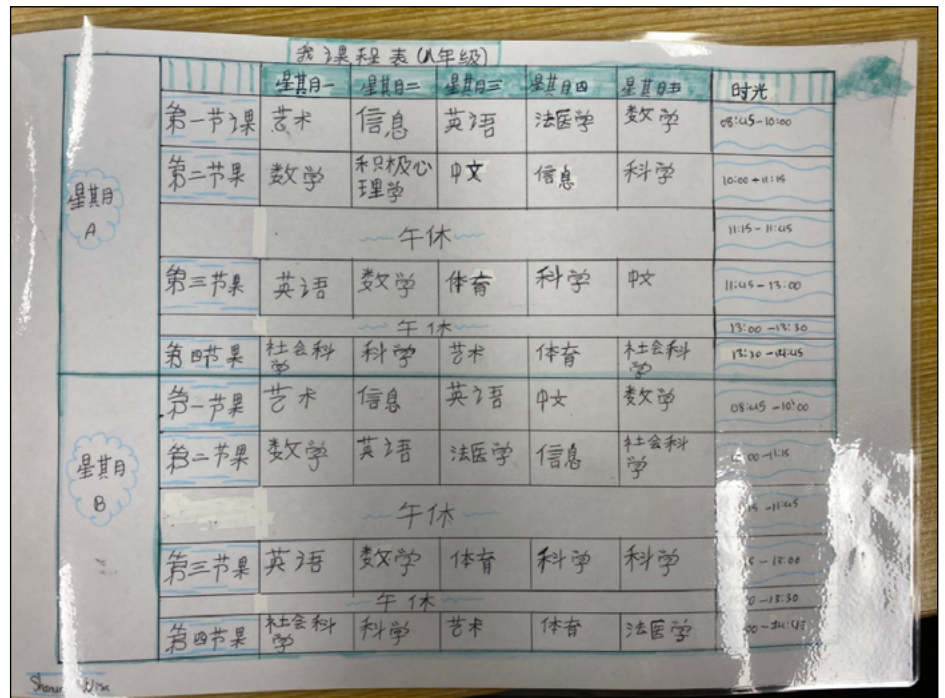 我课程表(八年级)
星期一 星期二 星期三 星期四 星期五 时光
星期A
第一节课 艺术 信息 英语 法医学 数学 08:45-10:00
第二节课 数学 积极心理学 中文 信息 科学 10:00-11:15
午休 11:15-11:45
第三节课 英语 数学 体育 科学 中文 11:45-13:00
午休 13:00-13:30
第四节课 社会科学 科学 艺术 体育 社会科学
星期B
第一节课 艺术 信息 英语 中文 数学 08:45-10:00
第二节课 数学 英语 法医学 信息 社会科学 :00-11:15
午休 15-11:45
第三节课 英语 数学 体育 科学 科学 5-13:00
午休 0-13:30
第四节课 社会科学 科学 艺术 体育 法医学